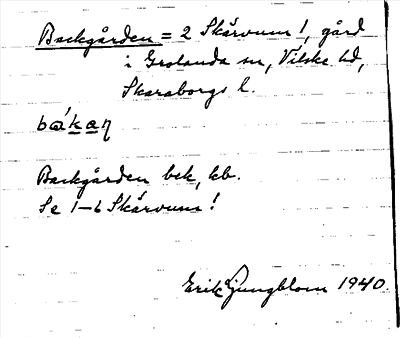 Backgården = 2 Skårvum 1, gård
i Grolanda sn, Vilske hd,
Skaraborgs l.
bákaη
Backgården bek, kb.
Se 1-6 Skårvum!
Erik Ljungblom 1940.